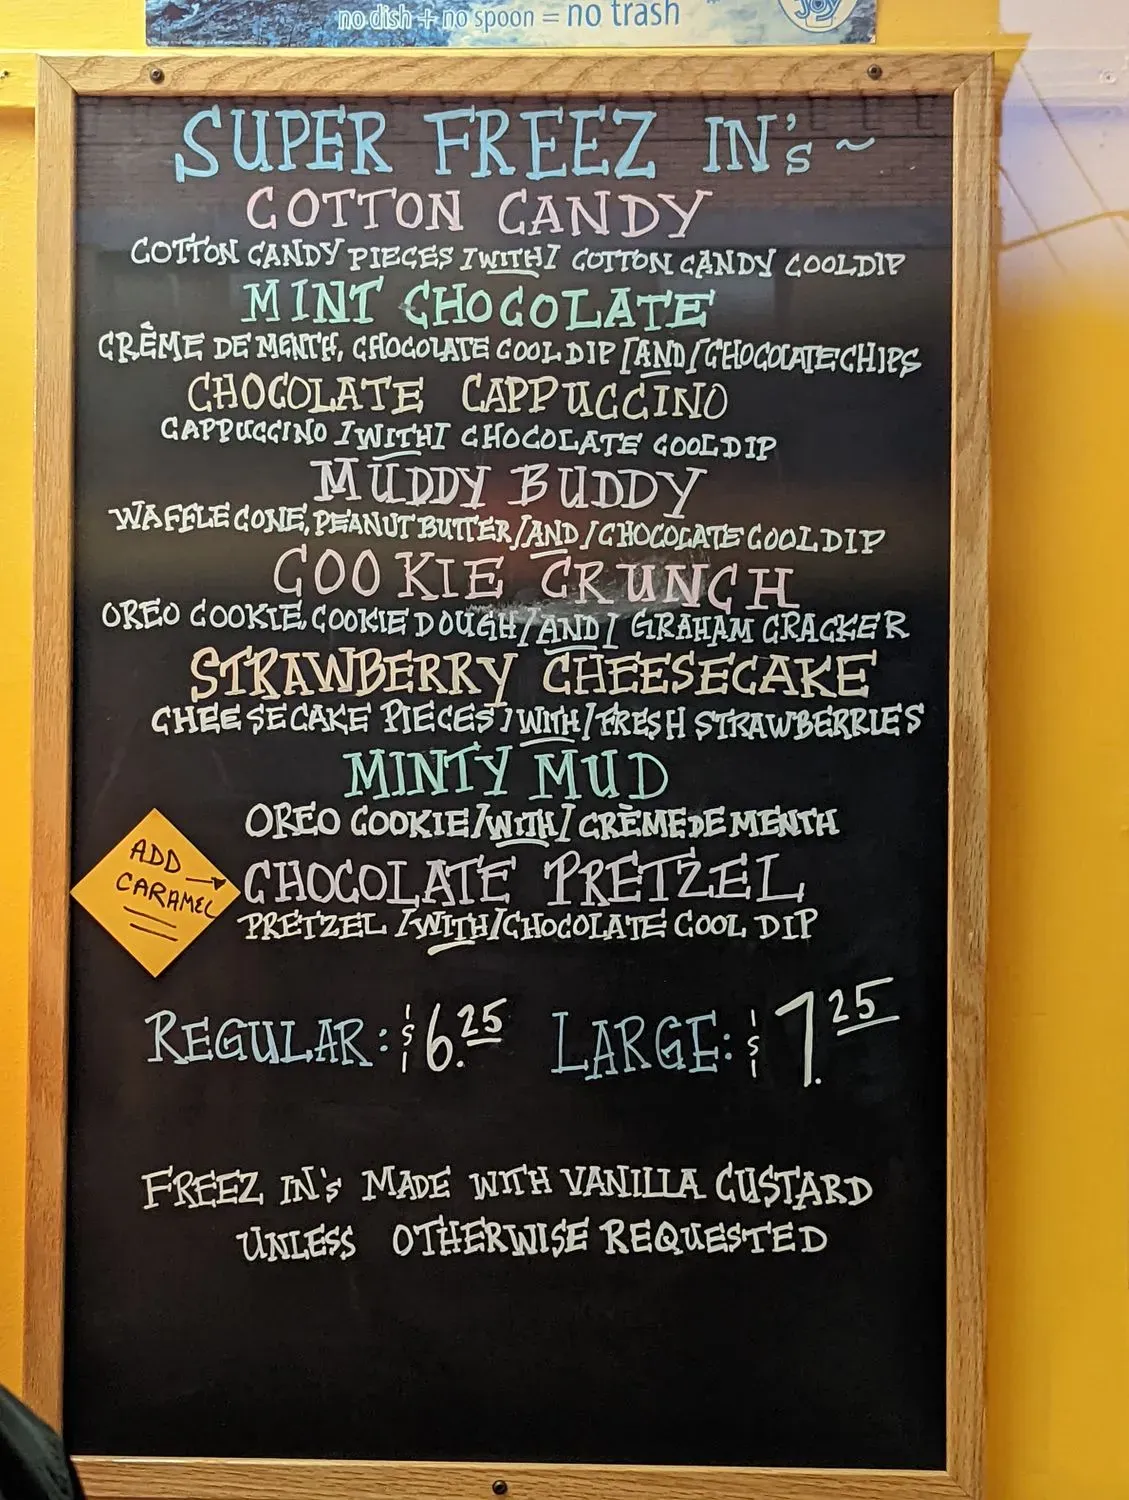 no dish + no spoon = no trash
JOY
SUPER FREEZ IN's ~
COTTON CANDY
COTTON CANDY PIECES /WITH/ COTTON CANDY COOL DIP
MINT CHOCOLATE
CRÈME DE MENTH, CHOCOLATE COOL DIP /AND/ CHOCOLATE CHIPS
CHOCOLATE CAPPUCCINO
CAPPUCCINO /WITH/ CHOCOLATE COOL DIP
MUDDY BUDDY
WAFFLE CONE, PEANUT BUTTER /AND/ CHOCOLATE COOL DIP
COOKIE CRUNCH
OREO COOKIE, COOKIE DOUGH /AND/ GRAHAM CRACKER
STRAWBERRY CHEESECAKE
CHEESECAKE PIECES /WITH/ FRESH STRAWBERRIES
MINTY MUD
OREO COOKIE /WITH/ CRÈME DE MENTH
ADD →
CARAMEL
CHOCOLATE PRETZEL
PRETZEL /WITH/ CHOCOLATE COOL DIP
REGULAR: $6.25 LARGE: $7.25
FREEZ IN's MADE WITH VANILLA CUSTARD
UNLESS OTHERWISE REQUESTED